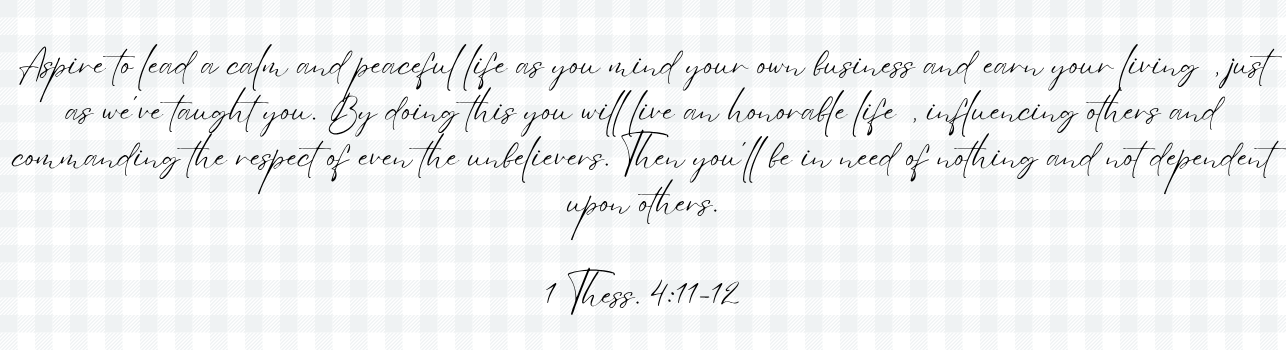 Aspire to lead a calm and peaceful life as you mind your own business and earn your living , just
as we've taught you. By doing this you will live an honorable life , influencing others and
commanding the respect of even the unbelievers. Then you'll be in need of nothing and not dependent
upon others.
1 Thess. 4:11-12